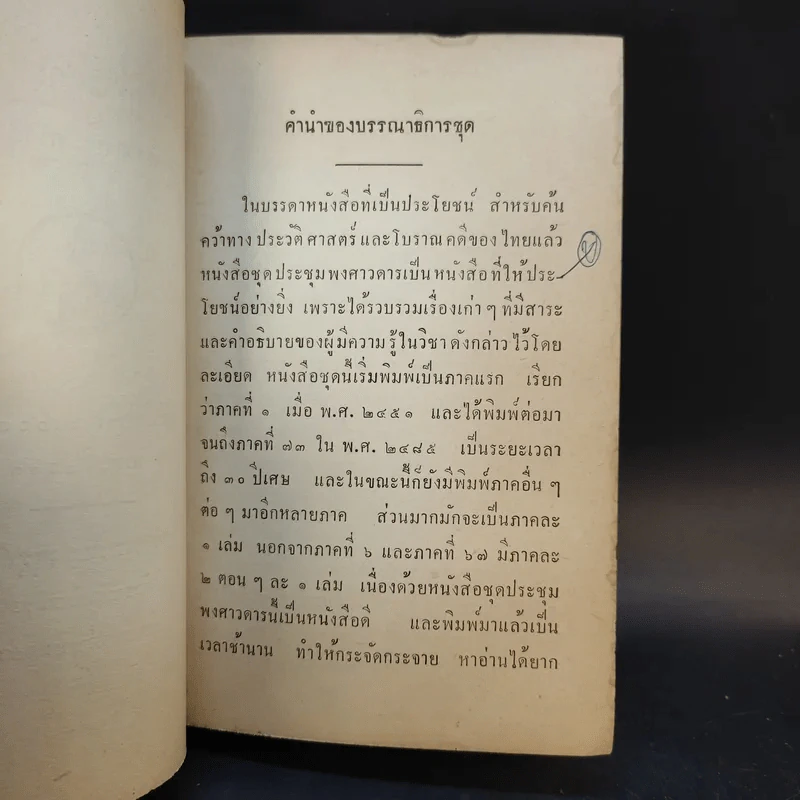 คำนำของบรรณาธิการชุด
ในบรรดาหนังสือที่เป็นประโยชน์ สำหรับค้น
คว้าทาง ประวัติ ศาสตร์ และโบราณ คดีของ ไทยแล้ว
หนังสือชุด ประชุม พงศาวดารเป็น หนังสือ ที่ให้ ประ-
โยชน์อย่างยิ่ง เพราะได้รวบรวมเรื่องเก่า ๆ ที่มีสาระ
และคำอธิบายของผู้มีความรู้ในวิชา ดังกล่าว ไว้โดย
ละเอียด หนังสือชุดนี้เริ่มพิมพ์เป็นภาคแรก เรียก
ว่าภาคที่ ๑ เมื่อ พ.ศ. ๒๔๕๑ และได้พิมพ์ต่อมา
จนถึงภาคที่ ๗๓ ใน พ.ศ. ๒๔๘๕ เป็นระยะเวลา
ถึง ๓๐ ปีเศษ และในขณะนี้ก็ยังมีพิมพ์ภาคอื่น ๆ
ต่อ ๆ มาอีกหลายภาค ส่วนมากมักจะเป็นภาคละ
๑ เล่ม นอกจากภาคที่ ๖ และภาคที่ ๖๗ มีภาคละ
๒ ตอน ๆ ละ ๑ เล่ม เนื่องด้วยหนังสือชุดประชุม
พงศาวดารนี้เป็นหนังสือดี และพิมพ์มาแล้วเป็น
เวลาช้านาน ทำให้กระจัดกระจาย หาอ่านได้ยาก